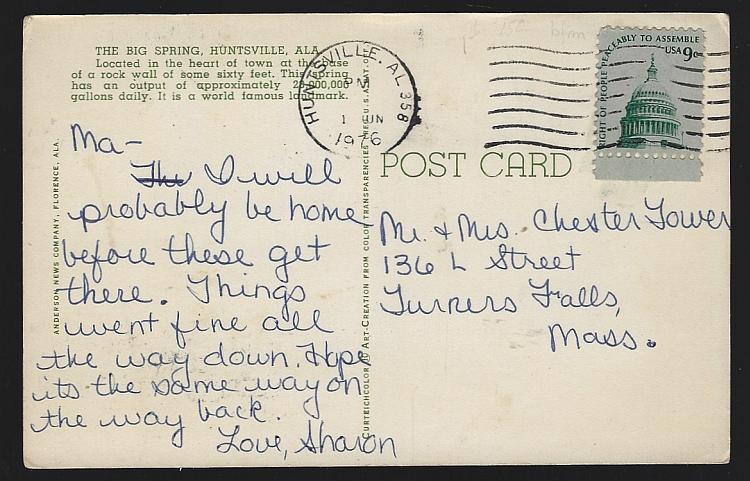 THE BIG SPRING, HUNTSVILLE, ALA.
Located in the heart of town at the base
of a rock wall of some sixty feet. This spring
has an output of approximately 20,000,000
gallons daily. It is a world famous landmark.
HUNTSVILLE, AL 358
PM
1 JUN
1976
RIGHT OF PEOPLE PEACEABLY TO ASSEMBLE
USA 9c
POST CARD
ANDERSON NEWS COMPANY, FLORENCE, ALA.
ART-CREATION FROM COLOR TRANSPARENCIES
Ma-
The I will
probably be home
before these get
there. Things
went fine all
the way down. Hope
its the same way on
the way back.
Love, Sharon
Mr. & Mrs. Chester Tower
136 L Street
Turners Falls,
Mass.